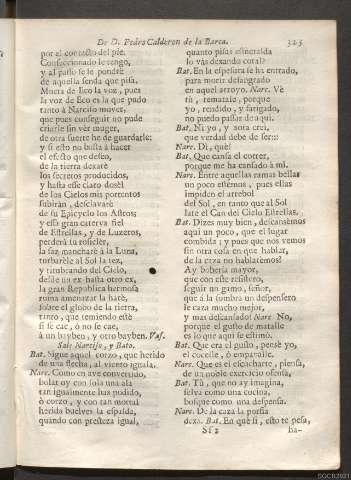 De D. Pedro Calderon de la Barca. 325
por el contacto del pie.
Confeccionado le tengo,
y al passo se le pondrè
de aquella senda que pisa.
Muera de Eco la voz, pues
la voz de Eco es la que pudo
tanto à Narciso mover,
que pues conseguir no pude
criarle sin vèr muger,
de otra suerte he de guardarle:
y si esto no basta à hacer
el efecto que deseo,
de la tierra dexarè
los secretos producidos,
y hasta esse claro dosèl
de los Cielos mis portentos
subiràn, desclavarè
de su Epicyclo los Astros;
y essa gran caterva fiel
de Estrellas, y de Luzeros,
perderà tu rosiclèr,
la faz mancharè à la Luna,
turbarèle al Sol la tez,
y titubeando del Cielo,
desde un exe hasta otro exe,
la gran Republica hermosa
ruina amenazar la harè,
sobre el globo de la tierra,
tanto, que temiendo estè
si se cae, ò no se cae,
à un bayben, y otro bayben. Vas.
Sale Narciso, y Bato.
Bat. Sigue aquel corzo, que herido
de una flecha, al viento iguala.
Narc. Como en ave convertido,
bolar oy con sola una ala
tan igualmente has podido,
ò corzo, y con tan mortal
herida buelves la espalda,
quando con presteza igual,
quanto pisas esmeralda
lo vàs dexando coral?
Bat. En la espesura se ha entrado,
para morir desangrado
en aquel arroyo. Narc. Vè
tù, rematale, porque
yo, rendido, y fatigado,
no puedo passar de aqui.
Bat. Ni yo, y aora creì,
que verdad debe de ser:::
Narc. Di, què?
Bat. Que cansa el correr,
porque me ha cansado à mi.
Narc. Entre aquellas ramas bellas
un poco estèmos, pues ellas
impiden el arrebol
del Sol, en tanto que al Sol
late el Can del Cielo Estrellas.
Bat. Dizes muy bien, descansemos
aqui un poco, que el lugar
combida; y pues que nos vemos
sin otra cosa en que hablar,
de la caza no hablarèmos?
Ay boberia mayor,
que con este resistero,
seguir un gamo, señor,
que à la sombra un despensero
le caza mucho mejor,
y mas descansado? Narc. No,
porque el gusto de matalle
es lo que aqui se estimò.
Bat. Que era el gusto, pensè yo,
el cocelle, ò empanalle.
Narc. Que es el escucharte, piensa,
de un noble exercicio ofensa.
Bat. Tù, que no ay imagina,
selva como una cocina,
bosque como una despensa.
Narc. De la caza la porfia
dexa. Bat. En què si, esto te pesa,
Sf 2 ha-
SGCB2021